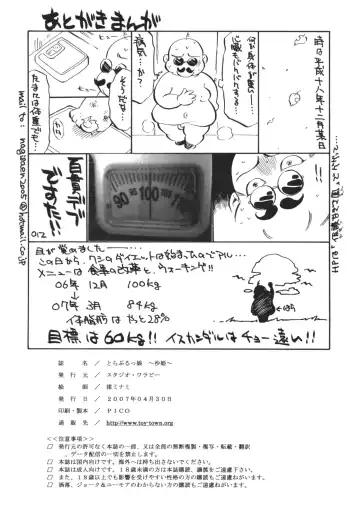 あとがきまんが
時は平成十八年十二月某日
何か身体が重い…
心臓もバクバクする…
病気…か?
そうだな…
たまには体重でも…
90 100 110
百貫デブ
ですた!!
012
mail to: nagisaen2005@hotmail.co.jp
目が覚めました―…
この日から、ワシのダイエットは始まったのでアル…
メニューは食事の改革と、ウォーキング!!
06年 12月 100kg
↓
07年 3月 84kg
体脂肪はやっと28%
目標は60kg!! イスカンダルはチョー遠い!!
誌 名 / とらぶるっ娘 ~沙姫~
発 行 元 / スタジオ・ワラビー
絵 師 / 渚ミナミ
発 行 日 / 2007年04月30日
印刷・製本 / PICO
通 販 先 / http://www.toy-town.org
<<注意事項>>
□ 発行元の許可なく本誌の一部、又は全部の無断複製・複写・転載・翻訳
、データ配信の一切を禁止します。
□ 本誌は国内向けです。海外へは持ち出さないでください。
□ 本誌は成人向けです。18歳未満の方は本誌購読、講読をご遠慮下さい。
□ また、18歳以上でも影響を受けやすい性格の方の購読もご遠慮ねがいます。
□ 洒落、ジョーク&ユーモアのわからない方の購読もご遠慮ねがいます。